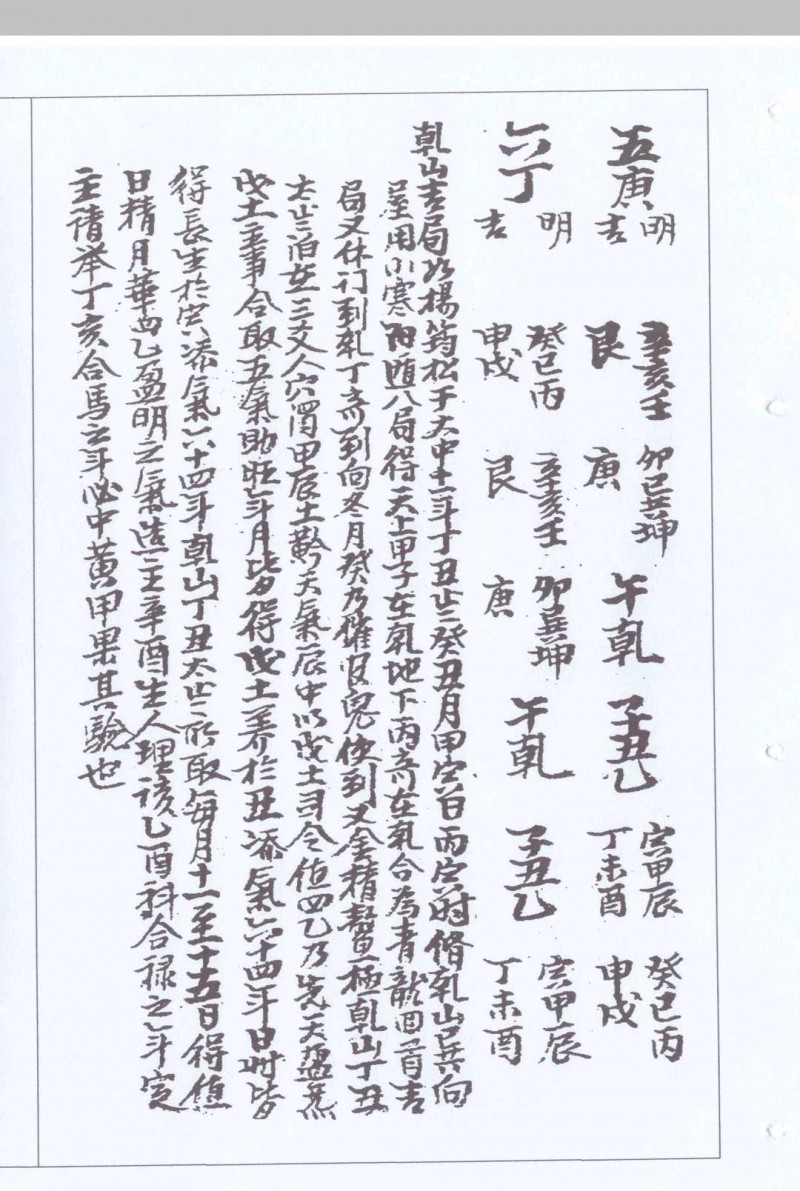 五庚 明吉 辛亥壬艮 卯巳巽坤庚 午乾 子丑乙 寅甲辰丁未酉 癸巳丙申戌
六丁 明吉 癸巳丙申戌 辛亥壬艮 卯巽坤庚 午乾 子丑乙 寅甲辰丁未酉
乾山吉局如楊筠松于大中十一年丁丑歲癸丑月甲寅日丙寅時脩乾山巳巽向
星用小寒 八局得天上甲子在乾地下丙奇在乾合為青龍回首吉
局又休门到乾丁奇到向冬月癸乃催官鬼使到又金精鰲極乾山丁丑
太歲泊在 人穴 甲辰土 天氣辰中以戊土司令值四乙乃先天盈
戊土主事合取五氣助旺年月皆得戊土養於丑添氣六十四年日時皆
得長生於寅添氣六十四年乾山丁丑太歲所取每月十一至十五日得值
日精月華四乙盈明之氣造主辛酉生人理該乙酉科合禄之年定
主 丁亥合馬之年必中黄甲果其驗也